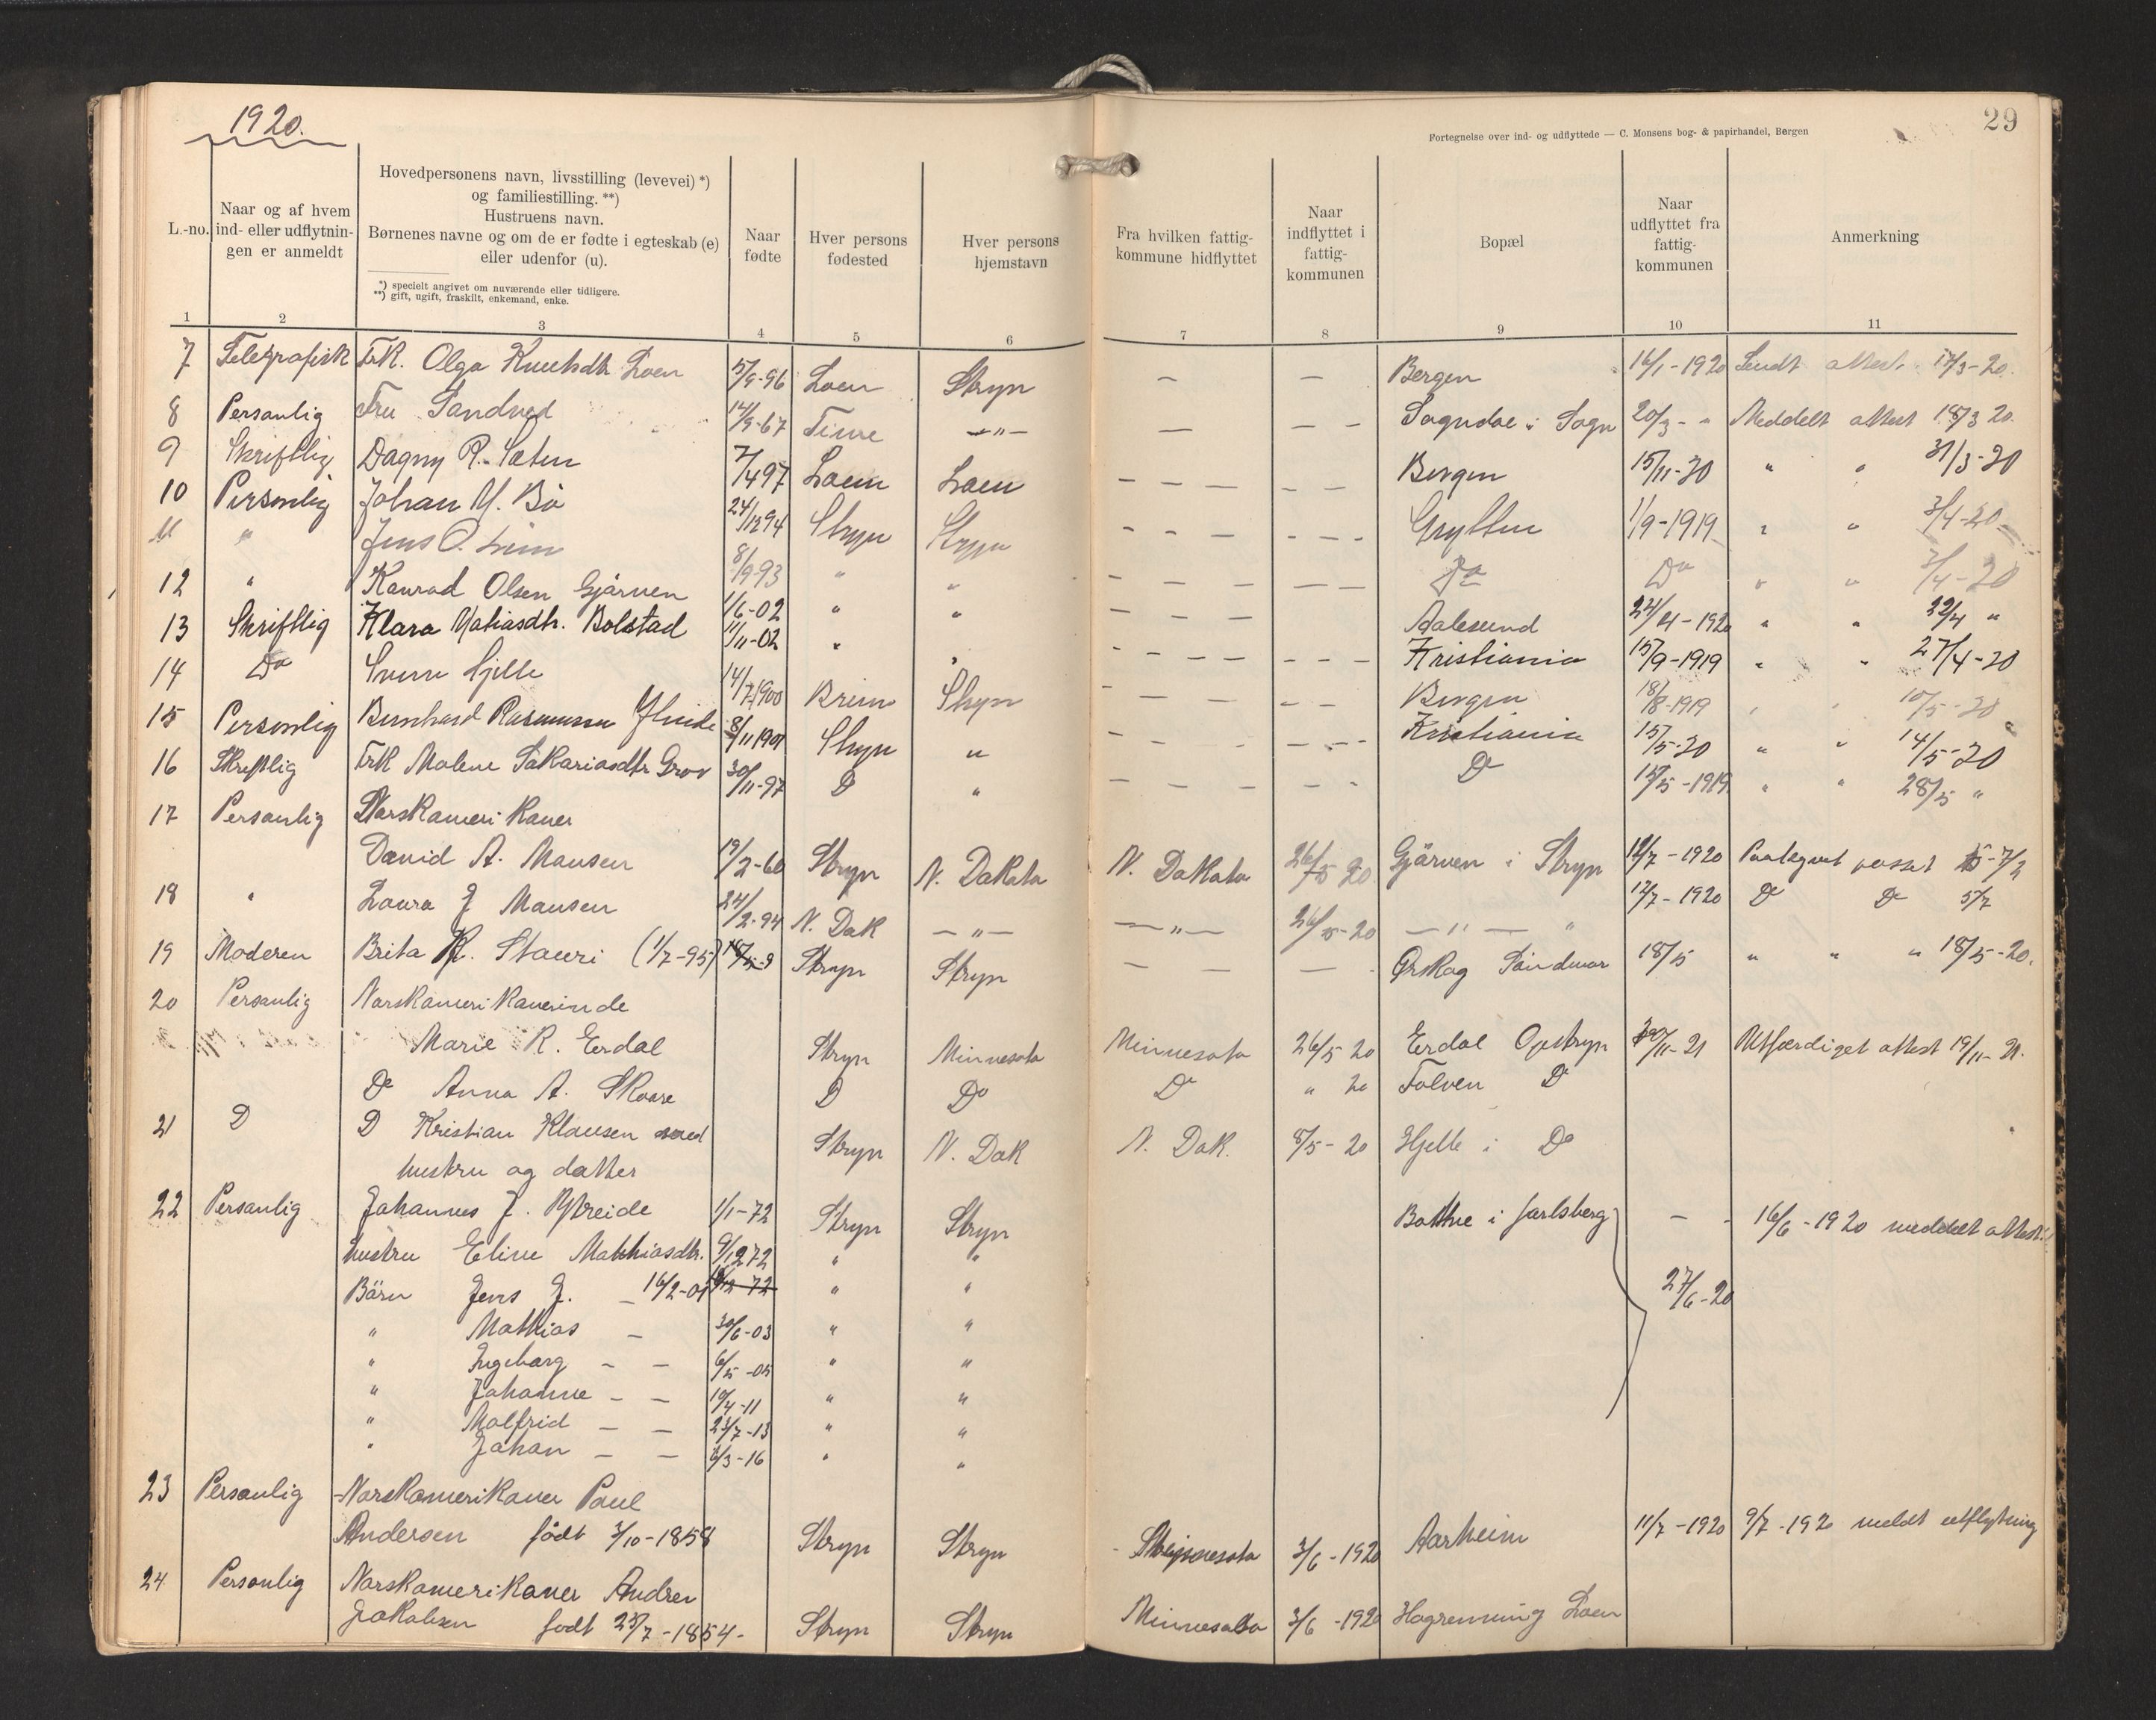 1920.
29
Fortegnelse over ind- og udflyttede — C. Monsens bog- & papirhandel, Bergen
L.-no.
Naar og af hvem ind- eller udflytnin- gen er anmeldt
Hovedpersonens navn, livsstilling (levevei) *) og familiestilling. **) Hustruens navn. Børnenes navne og om de er fødte i egteskab (e) eller udenfor (u).
*) specielt angivet om nuværende eller tidligere.
**) gift, ugift, fraskilt, enkemand, enke.
Naar fødte
Hver persons fødested
Hver persons hjemstavn
Fra hvilken fattig- kommune hidflyttet
Naar indflyttet i fattig- kommunen
Bopæl
Naar udflyttet fra fattig- kommunen
Anmerkning
1 2 3 4 5 6 7 8 9 10 11
7 Telegrafisk Frk. Olga Knutsdtr Loen 15/9-96 Loen Stryn — — Bergen 16/1-1920 Sendt attest. 17/3-20.
8 Personlig Fru Sandved 14/9-67 —"— — — — Sogndal i Sogn 20/3- " Meddelt attest 18/3 20.
9 Skriftlig Dagny R. Sæten 7/4 97 Loen Loen — — — — — Bergen 15/11-20 " " 31/3-20
10 Personlig Johan M. Bö 24/12 94 Stryn Stryn - - — — - - - Grytten 1/9-1919 " " 3/4-20
11 " Jens O. 8/9-93 " " - — — — — — — Do Do " " 3/4-20
12 " Konrad Olsen Gjärven 1/6-02 " " - — — — Aalesund 24/4-1920 " " 22/4 "
13 Skriftlig Klara Matiasdtr. Bolstad 11/11-02 " " - — — — - - - Kristiania 15/9-1919 " " 27/4-20
14 Do Sverre Hjelle 14/7 1900 Brim Stryn - — — — - — Bergen 18/8-1919 " " 10/5-20
15 Personlig Bernhard Rasmussen 8/11 1901 Stryn " - - - - - - - - Kristiania 15/5-20 " " 14/5-20
16 Skriftlig Frk Malene Sakariasdtr Grov 30/11-97 D " - - - — - - Do 15/5-1919 " " 28/5 "
17 Personlig Norskamerikaner
David A. Mansen 19/2-60 Stryn N. Dakota N. Dakota 26/5 20 Gjärven i Stryn 12/7-1920 Paategnet passet 5-7/2
18 " Laura J Mansen 24/2-94 N. Dak —"— —"— 26/5-20 —"— " 12/7-1920 Do Do 5/7
19 Moderen Brita R. Stauri (1/7-95) Stryn Stryn — — — — - Ørskog Söndmør 18/5 " " " 18/5-20.
20 Personlig Norskamerikanerinde
Marie R. Erdal Stryn Minnesota Minnesota 26/5 20 Erdal Opstryn 20/11-21 Utfærdiget attest 19/11-21.
Do Anna A. Skaare D Do Do " 20 Folven D
21 D D Kristian Klausen med Stryn N. Dak N. Dak. 8/5-20 Hjelle i Do
hustru og datter
22 Personlig Johannes J. Ystreide 1/1-72 Stryn Stryn Bothne i Jarlsberg — - 16/6-1920 meddelt attest.
hustru Eline Mathiasdtr. 9/12 72 " "
Børn Jens J. — 16/2-01 9/12 72 " " 27/6-20
" Mathias — 30/6-03 " "
" Ingeborg — — 6/5-05 " "
" Johanne — — 10/4-11 " "
" Malfrid — — 23/7-13 " "
" Johan — — 6/3-16 " "
23 Personlig Norskamerikaner Paul
Andersen født 3/10-1858 Stryn Stryn 3/6-1920 Aarheim 11/7-1920 9/7-1920 meldt utflytning
24 Personlig Norskamerikaner Andrev
Jakobsen født 23/7-1854- Stryn Stryn Minnesota 3/6-1920 Hogrenning Loen